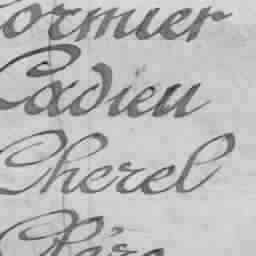 Cormier
Cadieu
Cherel